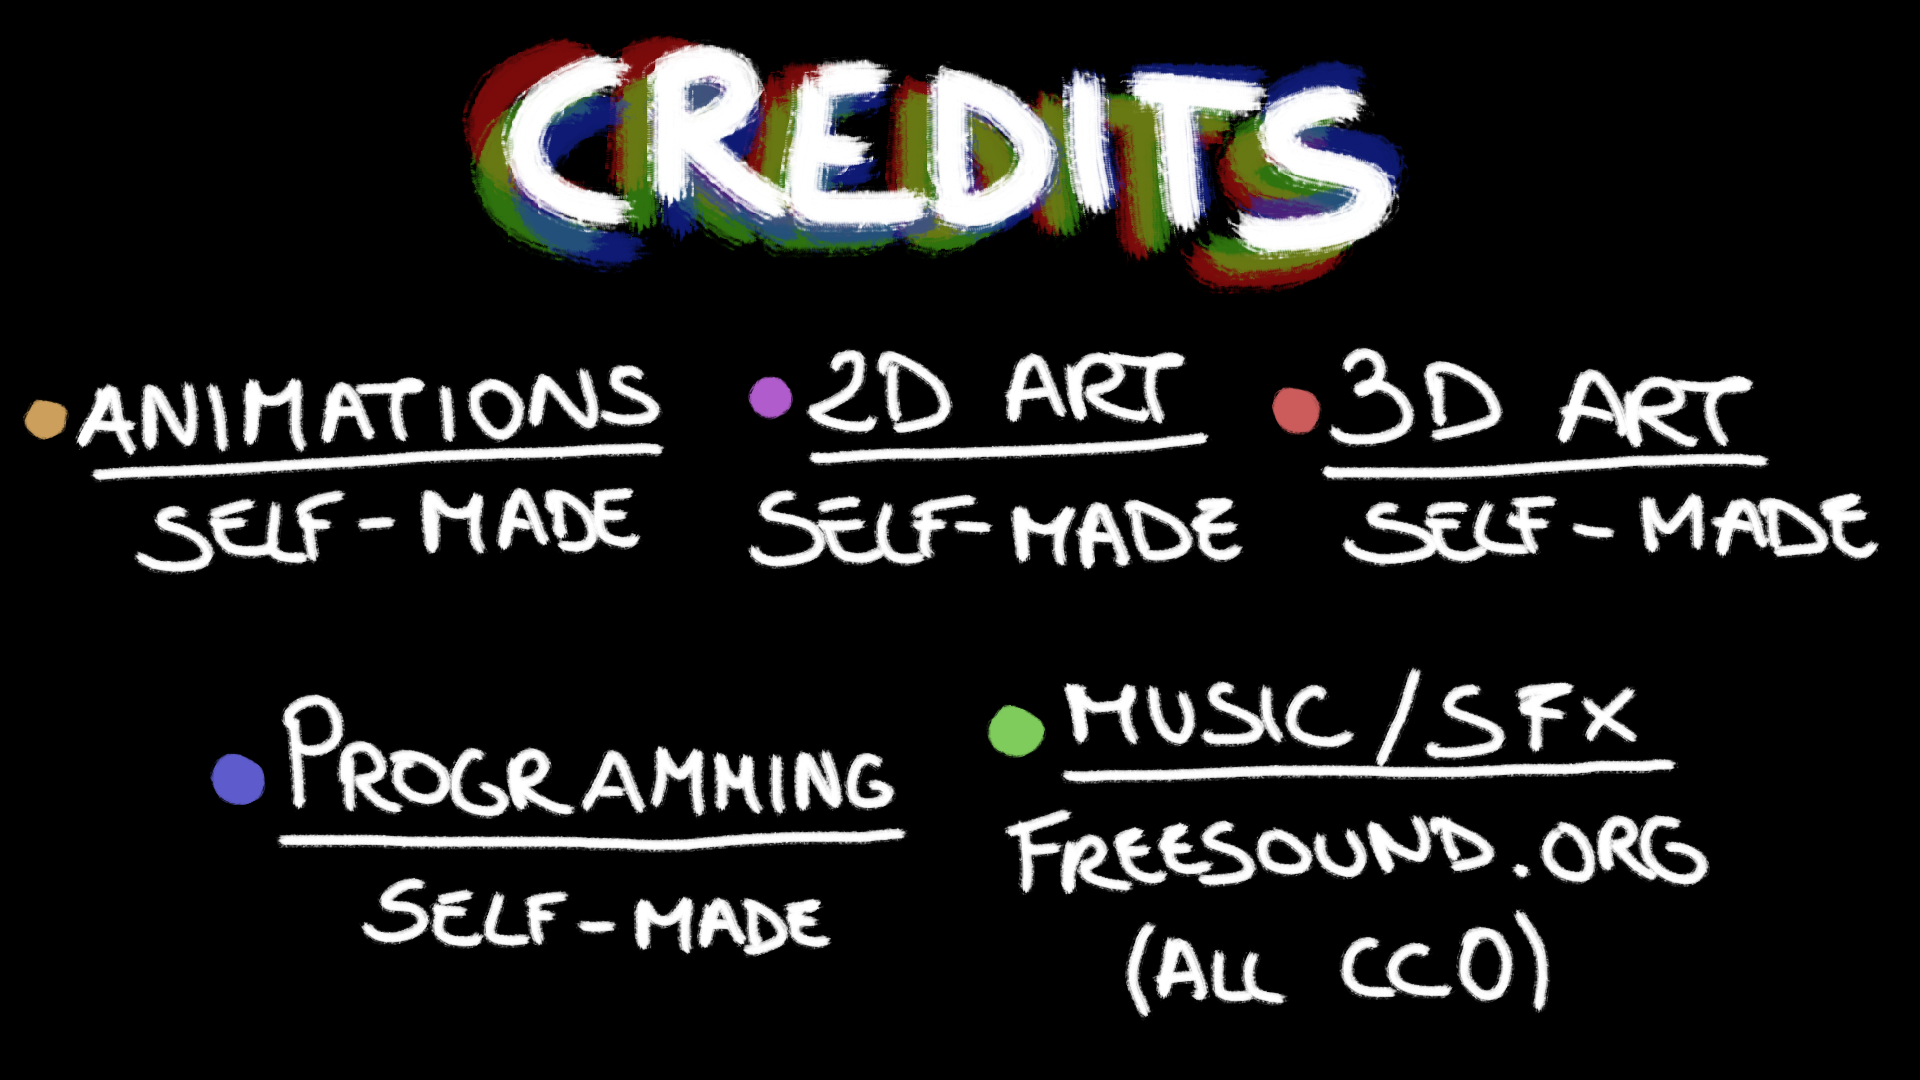 CREDITS
ANIMATIONS
SELF-MADE
2D ART
SELF-MADE
3D ART
SELF-MADE
PROGRAMMING
SELF-MADE
MUSIC/SFX
FREESOUND.ORG
(ALL CC0)